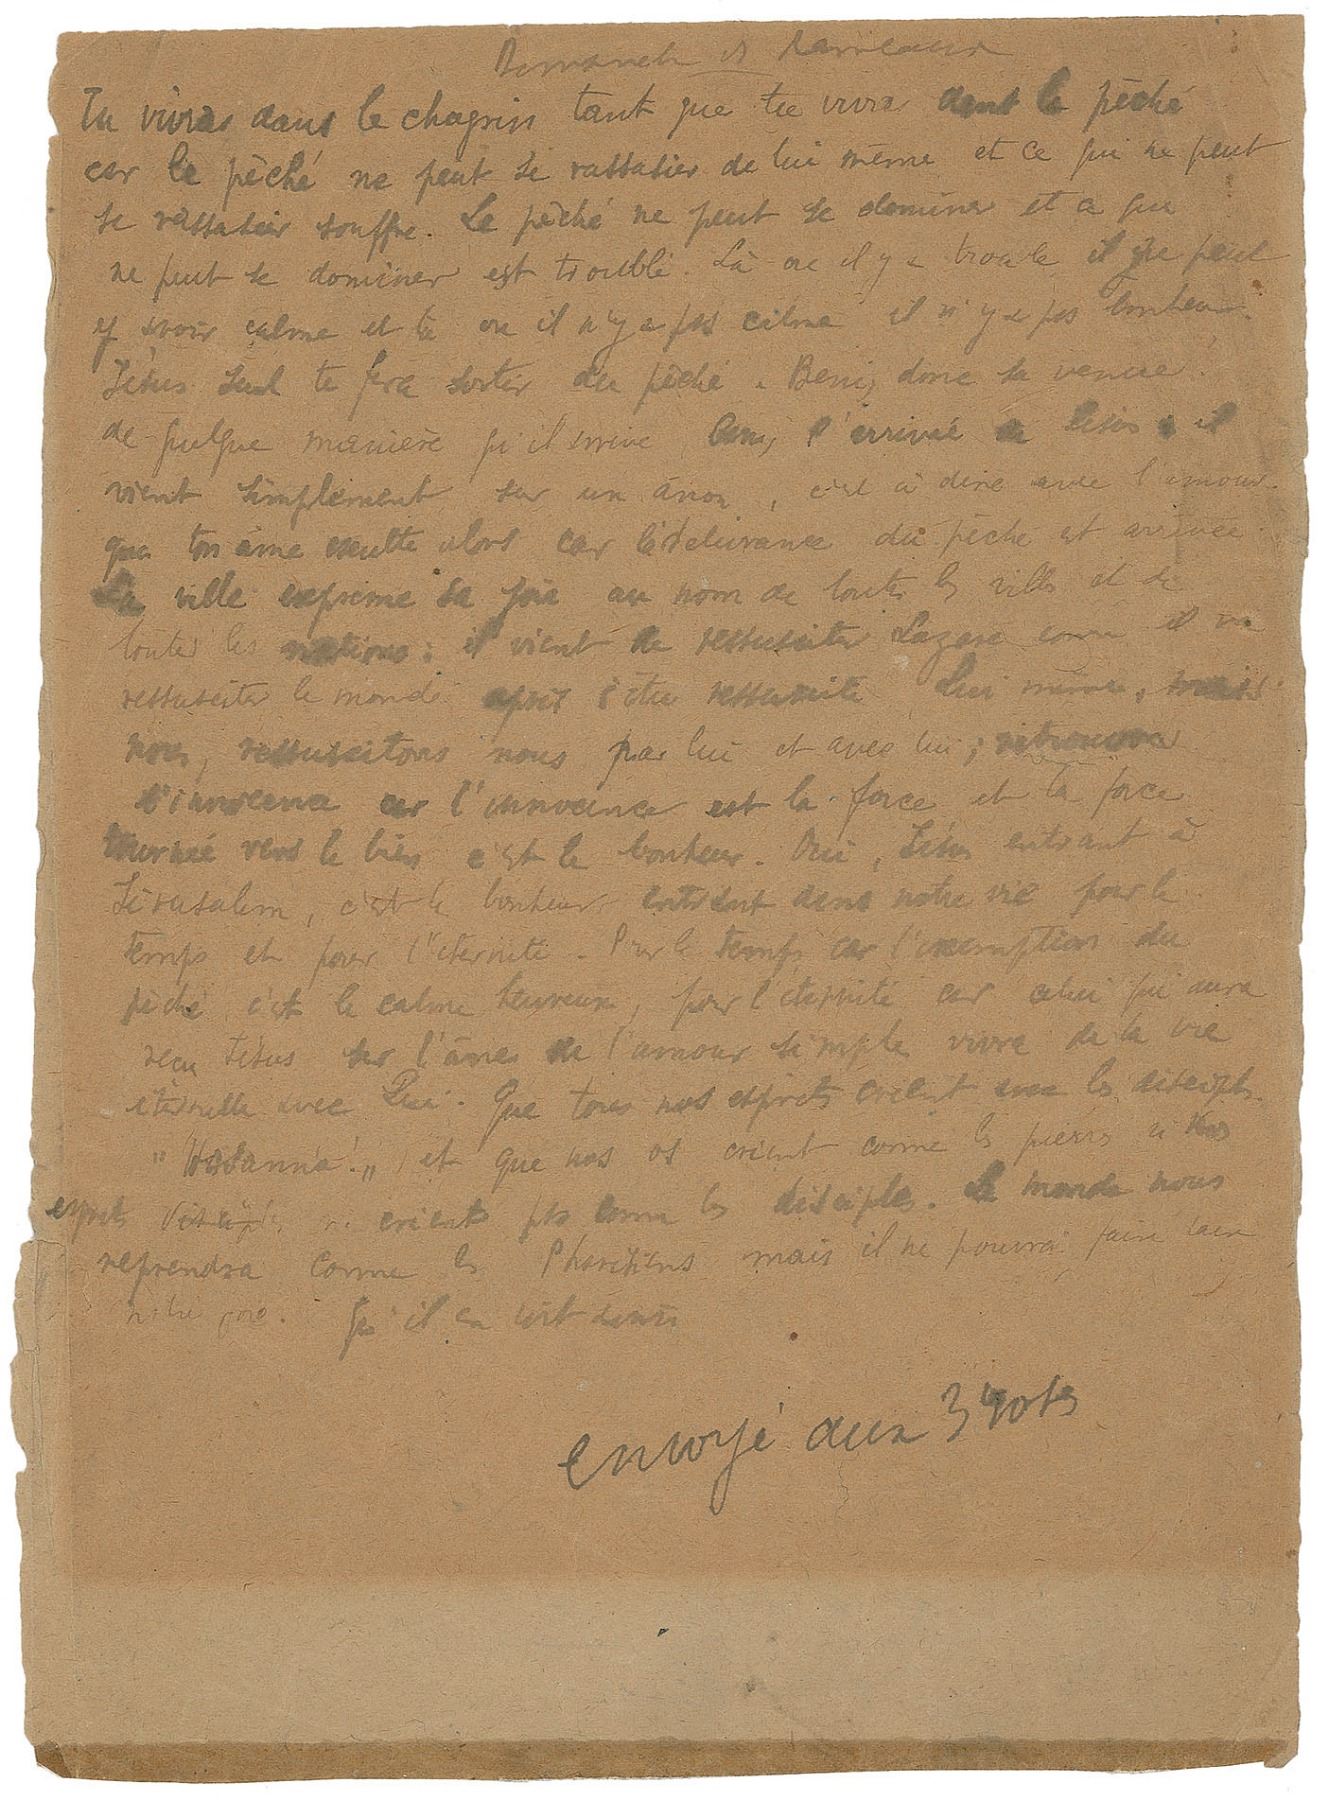 Dimanche des Rameaux
Tu vivras dans le chagrin tant que tu vivras dans le péché
car le péché ne peut se rassasier de lui même et ce qui ne peut
se rassasier souffre. Le péché ne peut se dominer et ce qui
ne peut se dominer est troublé. Là ou il y a trouble il ne peut
y avoir calme et là ou il n'y a pas calme il n'y a pas bonheur.
Jésus seul te fera sortir du péché. Bénis donc sa venue!
de quelque manière qu'il arrive, bénis l'arrivée de Jésus; il
vient simplement sur un ânon, c'est à dire avec l'amour.
que ton âme exulte alors car la délivrance du péché est arrivée.
La ville exprime sa joie au nom de toutes les villes et de
toutes les nations: il vient de ressusciter Lazare comme il va
ressusciter le monde après s'être ressuscité Lui même, mais
nous, ressuscitons nous par lui et avec lui; retrouvons
l'innocence car l'innocence est la force et la force
tournée vers le bien c'est le bonheur. Oui, Jésus entrant à
Jérusalem, c'est le bonheur entrant dans notre vie pour le
temps et pour l'éternité. Pour le temps car l'exemption du
péché c'est le calme heureux, pour l'éternité car celui qui aura
reçu Jésus sur l'ânes de l'amour simple vivra de la vie
éternelle avec Lui. Que tous nos esprits crient avec les disciples
"Hosanna!" et que nos os crient comme les pierres si nos
esprits disciples ne crient pas comme les disciples. Le monde nous
reprendra comme les Pharisiens mais il ne pourra faire taire
notre joie. Qu'il en soit ainsi
envoyé aux 3 4 ots